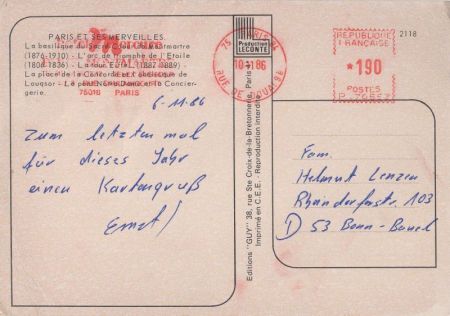 PARIS ET SES MERVEILLES.
La basilique du Montmartre
(1876-1910) - L'arc de triomphe de l'Etoile
(1806-1836) - La tour Eiffel (1887-1889) -
La place de la Concorde et l'obélisque de
Louqsor - Le Concier-
gerie.
75018 PARIS
6-11-86
zum letzten mal
für dieses Jahr
einen Kartengruß
Ernst
Editions "GUY" 38, rue Ste Croix-de-la-Bretonnerie, Paris 4e
Imprimé en C.E.E. - Reproduction interdite
Production
LECONTE
75 PARIS 96
10-11 86
RUE DE DOUAI 96
REPUBLIQUE
FRANÇAISE
*190
POSTES
2118
Fam.
Helmut Lenzen
103
D 53 Bonn-Beuel